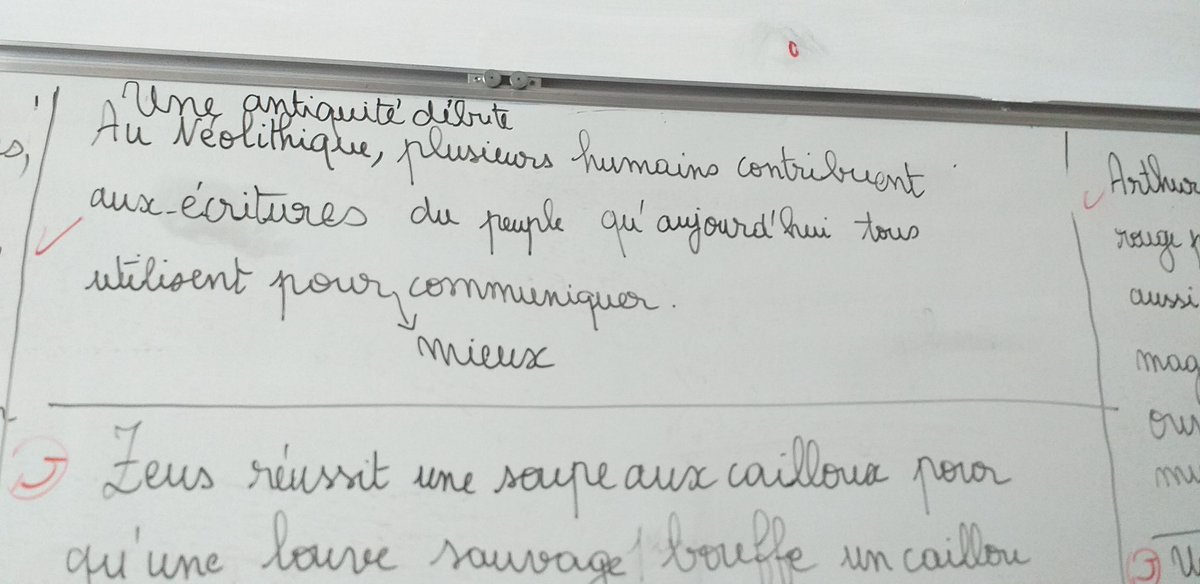 Une antiquité débute
Au Néolithique, plusieurs humains contribuent
aux écritures du peuple qu'aujourd'hui tous
utilisent pour communiquer.
mieux
Zeus réussit une soupe aux cailloux pour
qu'une louve sauvage bouffe un caillou
Arthur
rouge
aussi
mag